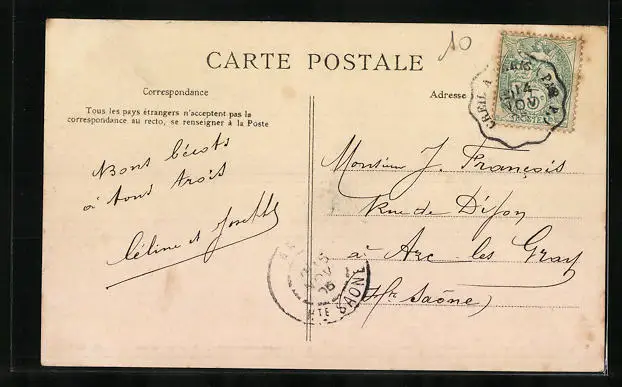 10
CARTE POSTALE
Correspondance
Tous les pays étrangers n'acceptent pas la
correspondance au recto, se renseigner à la Poste
Bons bécots
à tous trois
Céline et Joseph
Adresse
Monsieur J. François
Rue de Dijon
à Arc les Gray
(Hte Saône)
CREIL A
14
NOV
POSTES
NOV
HTE SAONE